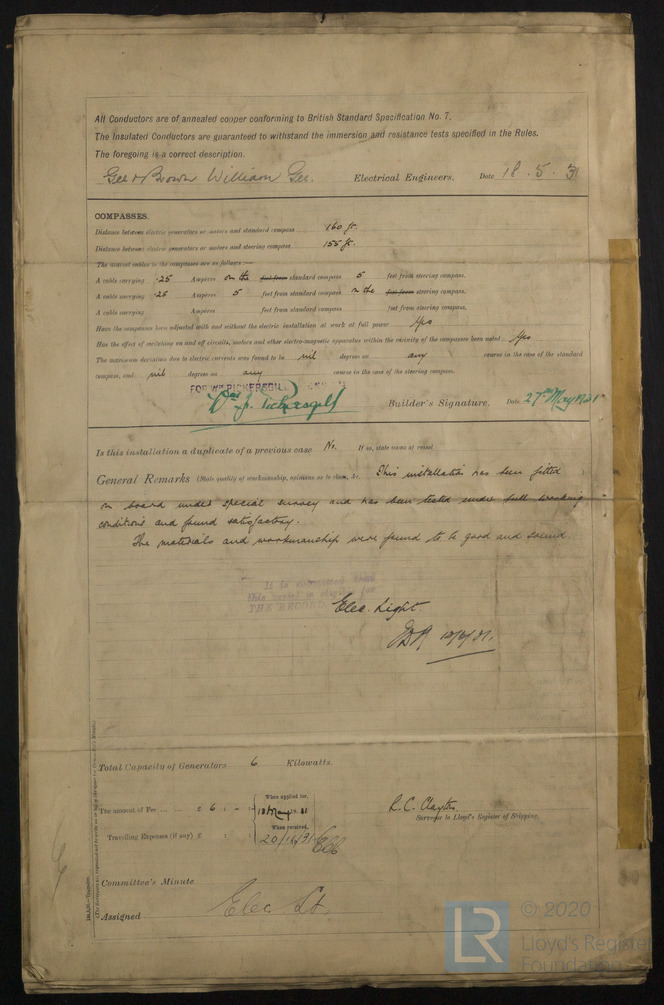 All Conductors are of annealed copper conforming to British Standard Specification No. 7.
The Insulated Conductors are guaranteed to withstand the immersion and resistance tests specified in the Rules.
The foregoing is a correct description.
Electrical Engineers. Date 18.5.31
COMPASSES.
Distance between electric generators or motors and standard compass 160 ft.
Distance between electric generators or motors and steering compass 155 ft.
The nearest cables to the compasses are as follows:—
A cable carrying .25 Amperes on the feet from standard compass 5 feet from steering compass.
A cable carrying .25 Amperes 5 feet from standard compass on the feet from steering compass.
A cable carrying Amperes feet from standard compass feet from steering compass.
Have the compasses been adjusted with and without the electric installation at work at full power Yes
Has the effect of switching on and off circuits, motors and other electro-magnetic apparatus within the vicinity of the compasses been noted Yes
The maximum deviation due to electric currents was found to be nil degrees on any course in the case of the standard
compass, and nil degrees on any course in the case of the steering compass.
FOR Wm PICKERSGILL
Builder's Signature. Date 27th May 1931
Is this installation a duplicate of a previous case No. If so, state name of vessel
General Remarks (State quality of workmanship, opinions as to class, &c. This installation has been fitted
on board under special survey and has been tested under full working
conditions and found satisfactory.
The materials and workmanship were found to be good and sound.
It is submitted that
this vessel is eligible for
THE RECORD
Elec. Light.
Total Capacity of Generators 6 Kilowatts.
The amount of Fee £ 6 : - :
When applied for,
When received,
Travelling Expenses (if any) £ : :
20/10/31
R.C. Clayton
Surveyor to Lloyd's Register of Shipping.
Committee's Minute
Assigned
Elec Lt.
LR © 2020
Lloyd's Register
Foundation